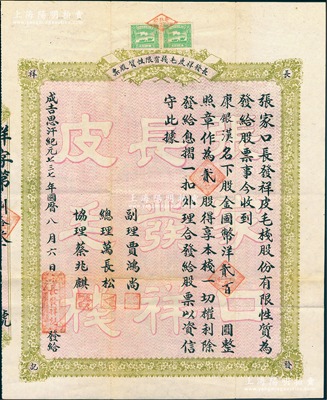 長發祥皮毛棧有限性質股票
長
祥
張家口長發祥皮毛棧股份有限性質為
發給股票事今收到
康銀漢名下股金國幣洋貳百圓整
照章作為貳股得享本棧一切權利除
發給息摺一扣外理合發給股票以資信
守此據
副理賈鴻尚
總理萬長松
協理蔡兆麒
成吉思汗紀元七三七年國曆八月六日
發給
發
記